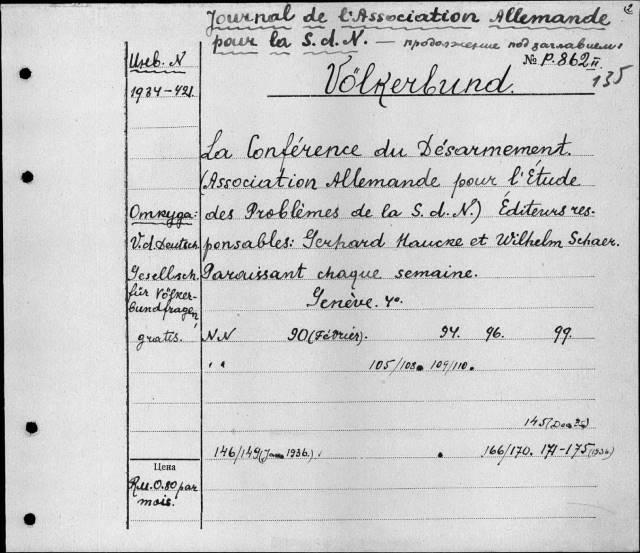 Journal de l'Association Allemande
pour la S.d.N. — продолжение под заглавием:
Инв. N
№ P.862 II
135
1934-421.
Völkerbund.
La Conférence du Désarmement.
(Association Allemande pour l'Étude
Откуда:
des Problèmes de la S.d.N.) Éditeurs res-
V. d. Deutsch.
ponsables: Gerhard Haucke et Wilhelm Schaer.
Gesellsch.
Paraissant chaque semaine.
für Völker-
bundfragen
Genève. 4º.
gratis.
NN 90 (Février). 94. 96. 99.
" 105/108. 109/110.
145
146/149 (1936.) 166/170. 171-175 (1936)
Цена
R.M. 0.80 par
mois.